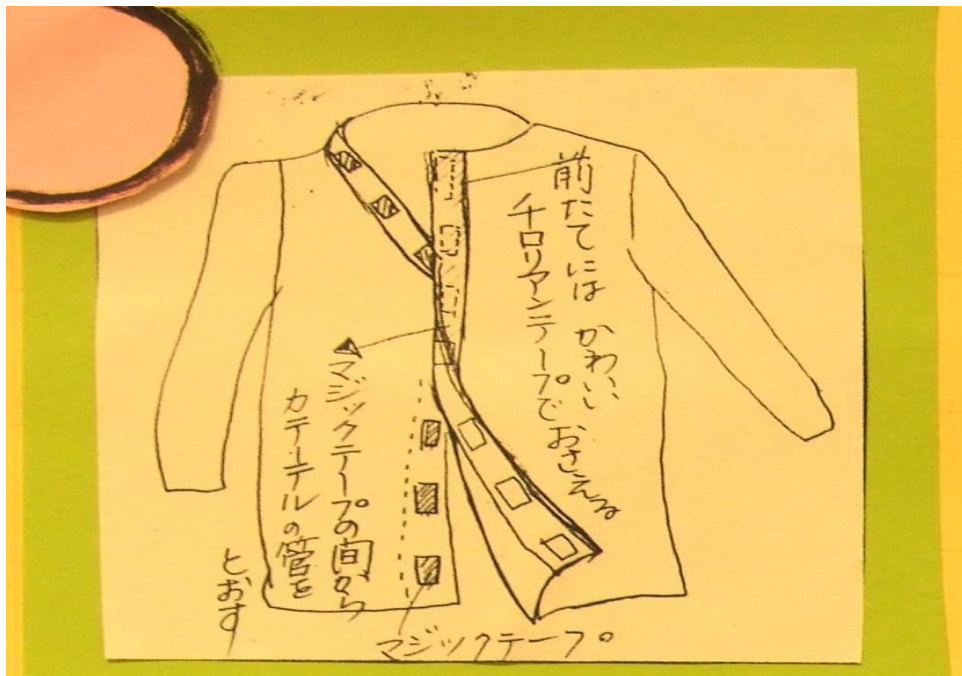 前たてには かわいい
チロリアンテープで おさえる
マジックテープの間から
カテーテルの管を
とおす
マジックテープ